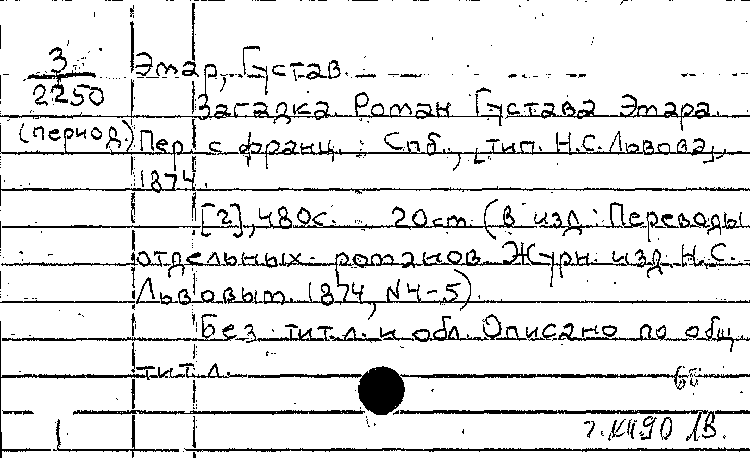 3
2250
(период)
Эмар, Густав.
Загадка. Роман Густава Эмара.
Пер. с франц. Спб., [тип. Н.С. Львова],
1874.
[2], 480с. 20см. (В изд.: Переводы
отдельных романов. Журн. изд. Н.С.
Львовым. 1874, N4-5).
Без тит.л. и обл. Описано по общ.
тит. л.
1